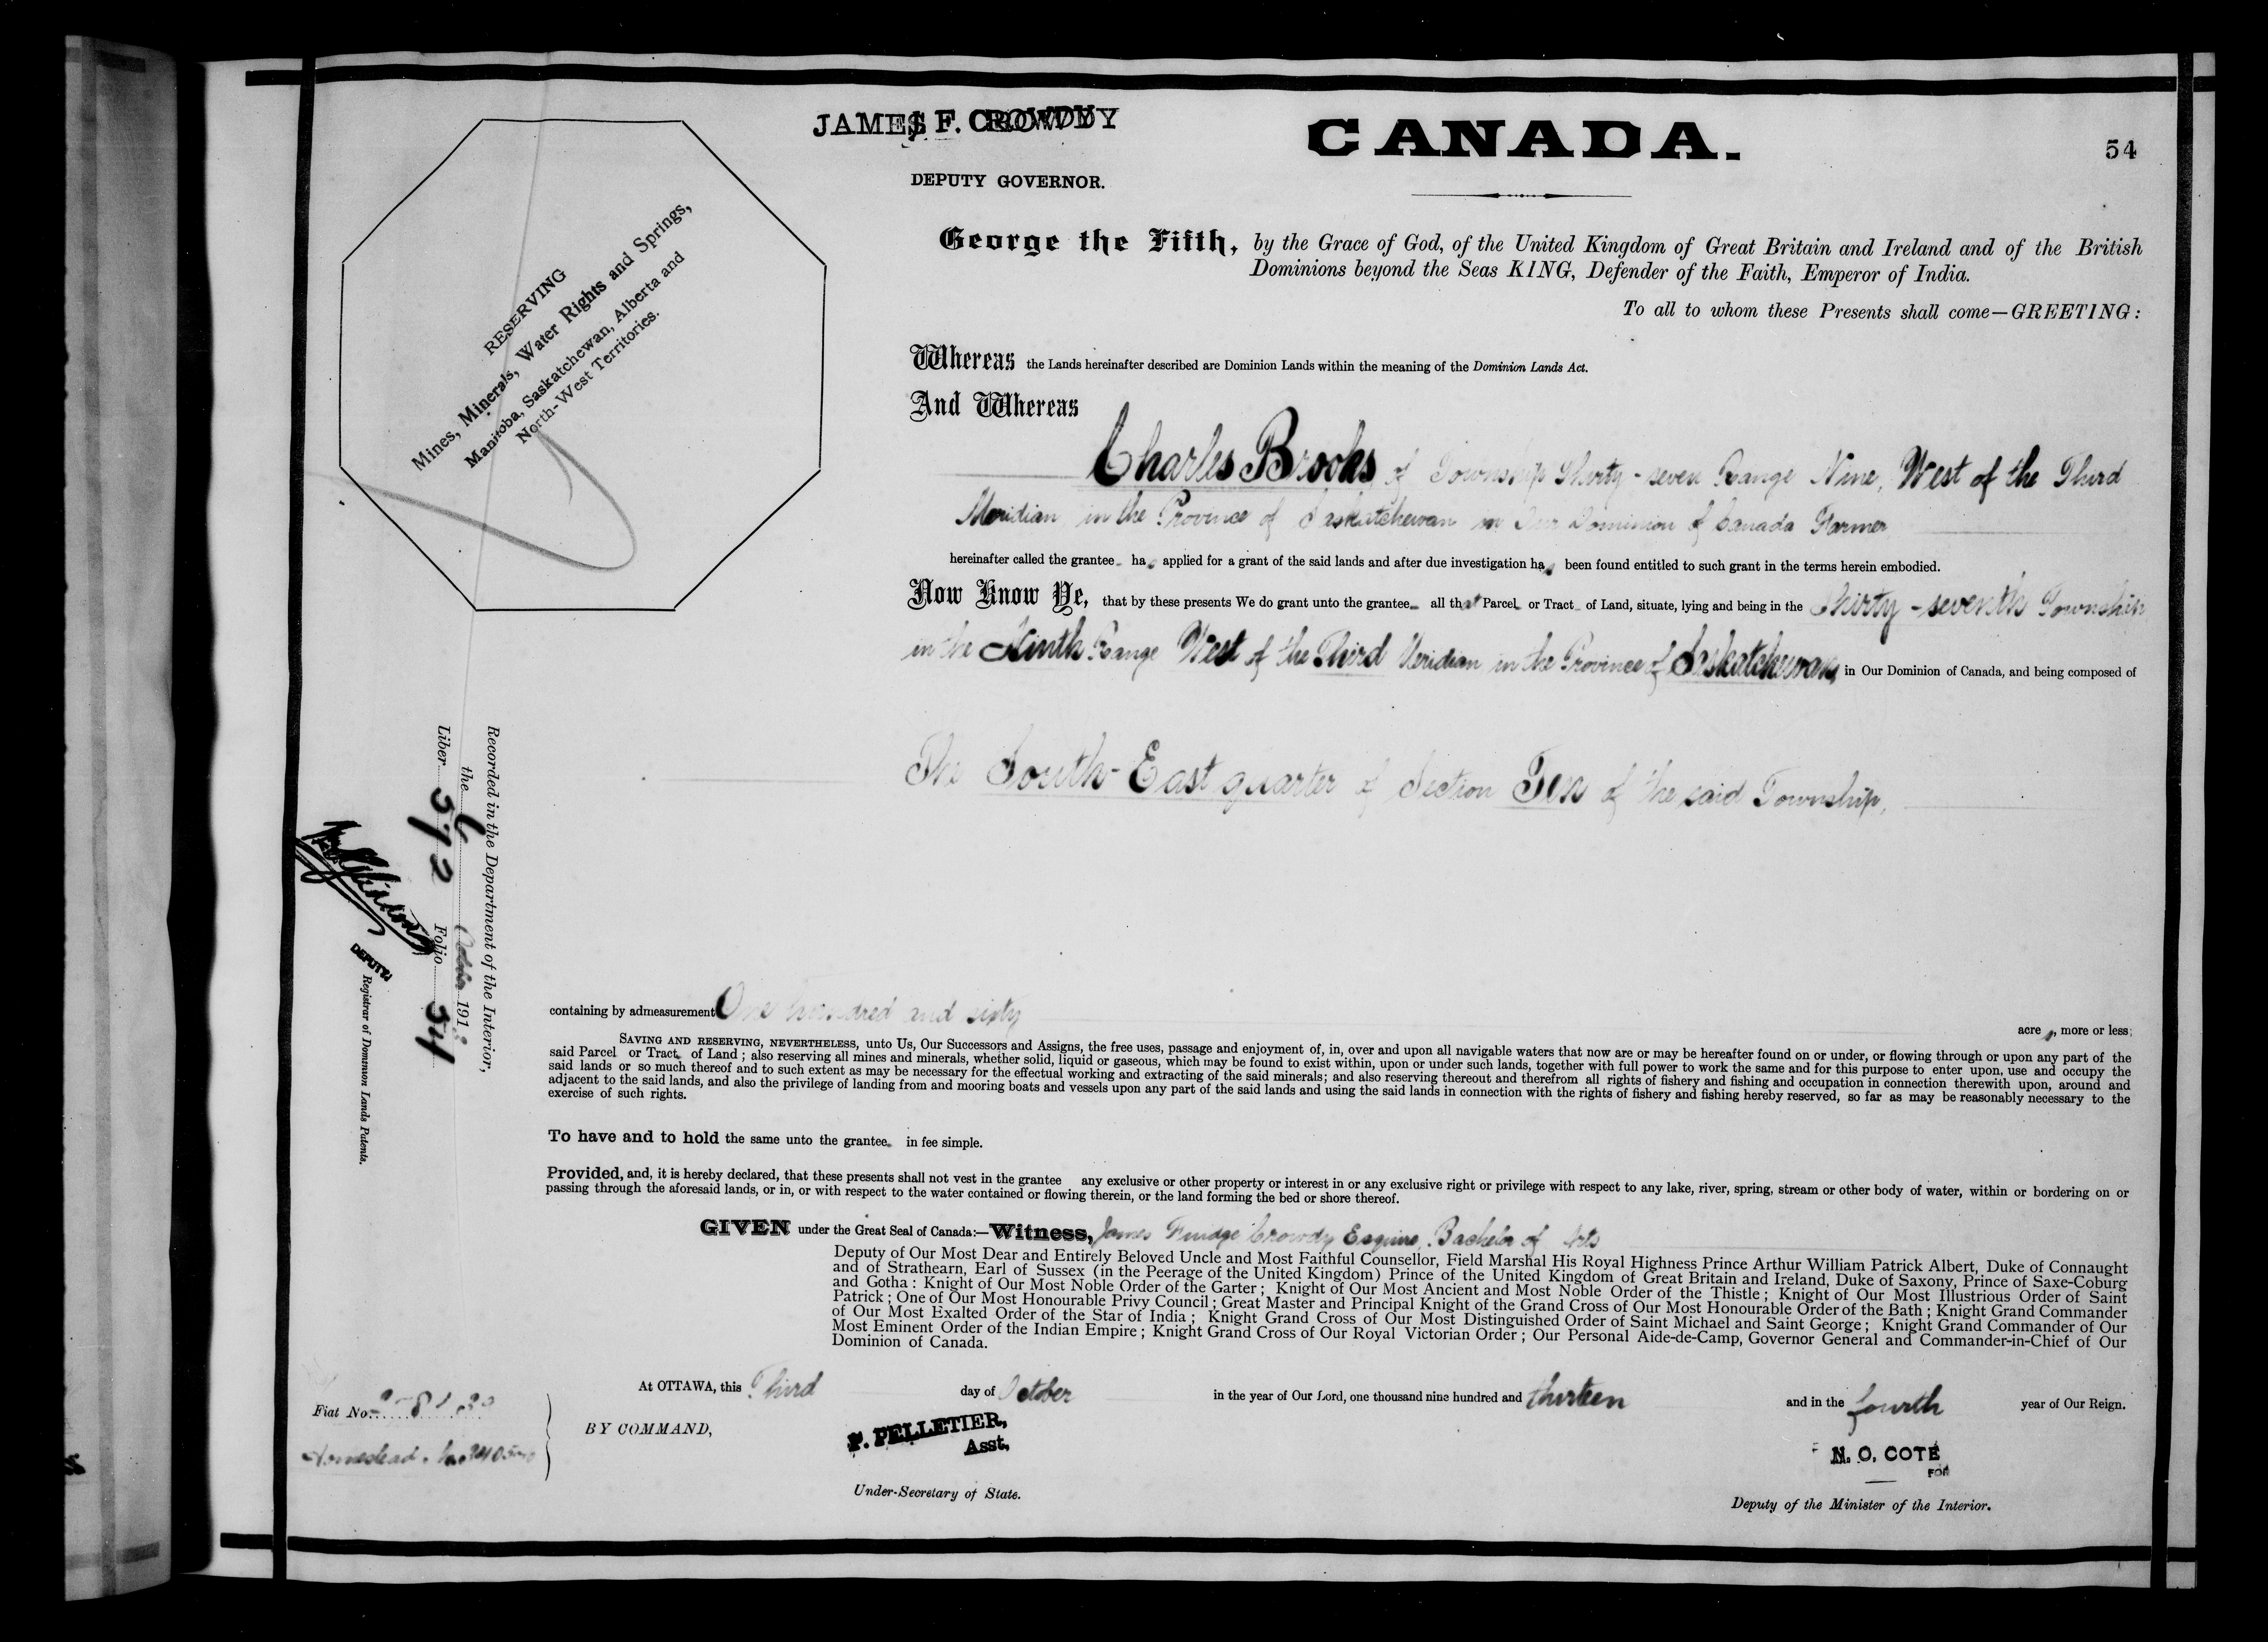 JAMES F. CROWDY
DEPUTY GOVERNOR.
CANADA.
54
RESERVING
Mines, Minerals, Water Rights and Springs,
Manitoba, Saskatchewan, Alberta and
North-West Territories.
George the Fifth, by the Grace of God, of the United Kingdom of Great Britain and Ireland and of the British
Dominions beyond the Seas KING, Defender of the Faith, Emperor of India.
To all to whom these Presents shall come—GREETING:
Whereas the Lands hereinafter described are Dominion Lands within the meaning of the Dominion Lands Act.
And Whereas
Charles Brooks of Township Thirty-seven Range Nine, West of the Third
Meridian in the Province of Saskatchewan in Our Dominion of Canada Farmer
hereinafter called the grantee has applied for a grant of the said lands and after due investigation has been found entitled to such grant in the terms herein embodied.
Now Know Ye, that by these presents We do grant unto the grantee all that Parcel or Tract of Land, situate, lying and being in the Thirty-seventh Township
in the Ninth Range West of the Third Meridian in the Province of Saskatchewan, in Our Dominion of Canada, and being composed of
The South-East quarter of Section Ten of the said Township,
containing by admeasurement One hundred and sixty acres, more or less;
SAVING AND RESERVING, NEVERTHELESS, unto Us, Our Successors and Assigns, the free uses, passage and enjoyment of, in, over and upon all navigable waters that now are or may be hereafter found on or under, or flowing through or upon any part of the
said Parcel or Tract of Land; also reserving all mines and minerals, whether solid, liquid or gaseous, which may be found to exist within, upon or under such lands, together with full power to work the same and for this purpose to enter upon, use and occupy the
said lands or so much thereof and to such extent as may be necessary for the effectual working and extracting of the said minerals; and also reserving thereout and therefrom all rights of fishery and fishing and occupation in connection therewith upon, around and
adjacent to the said lands, and also the privilege of landing from and mooring boats and vessels upon any part of the said lands and using the said lands in connection with the rights of fishery and fishing hereby reserved, so far as may be reasonably necessary to the
exercise of such rights.
To have and to hold the same unto the grantee in fee simple.
Provided, and, it is hereby declared, that these presents shall not vest in the grantee any exclusive or other property or interest in or any exclusive right or privilege with respect to any lake, river, spring, stream or other body of water, within or bordering on or
passing through the aforesaid lands, or in, or with respect to the water contained or flowing therein, or the land forming the bed or shore thereof.
GIVEN under the Great Seal of Canada:—Witness, James Fudge Crowdy Esquire, Bachelor of Arts
Deputy of Our Most Dear and Entirely Beloved Uncle and Most Faithful Counsellor, Field Marshal His Royal Highness Prince Arthur William Patrick Albert, Duke of Connaught
and of Strathearn, Earl of Sussex (in the Peerage of the United Kingdom) Prince of the United Kingdom of Great Britain and Ireland, Duke of Saxony, Prince of Saxe-Coburg
and Gotha: Knight of Our Most Noble Order of the Garter; Knight of Our Most Ancient and Most Noble Order of the Thistle; Knight of Our Most Illustrious Order of Saint
Patrick; One of Our Most Honourable Privy Council; Great Master and Principal Knight of the Grand Cross of Our Most Honourable Order of the Bath; Knight Grand Commander
of Our Most Exalted Order of the Star of India; Knight Grand Cross of Our Most Distinguished Order of Saint Michael and Saint George; Knight Grand Commander of Our
Most Eminent Order of the Indian Empire; Knight Grand Cross of Our Royal Victorian Order; Our Personal Aide-de-Camp, Governor General and Commander-in-Chief of Our
Dominion of Canada.
At OTTAWA, this Third day of October in the year of Our Lord, one thousand nine hundred and thirteen and in the fourth year of Our Reign.
BY COMMAND,
P. PELLETIER,
Asst.
Under-Secretary of State.
N. O. COTE
FOR
Deputy of the Minister of the Interior.
Fiat No.
Homestead
Recorded in the Department of the Interior,
the 6 October 191
Liber 592 Folio 54
DEPUTY
Registrar of Dominion Lands Patents.